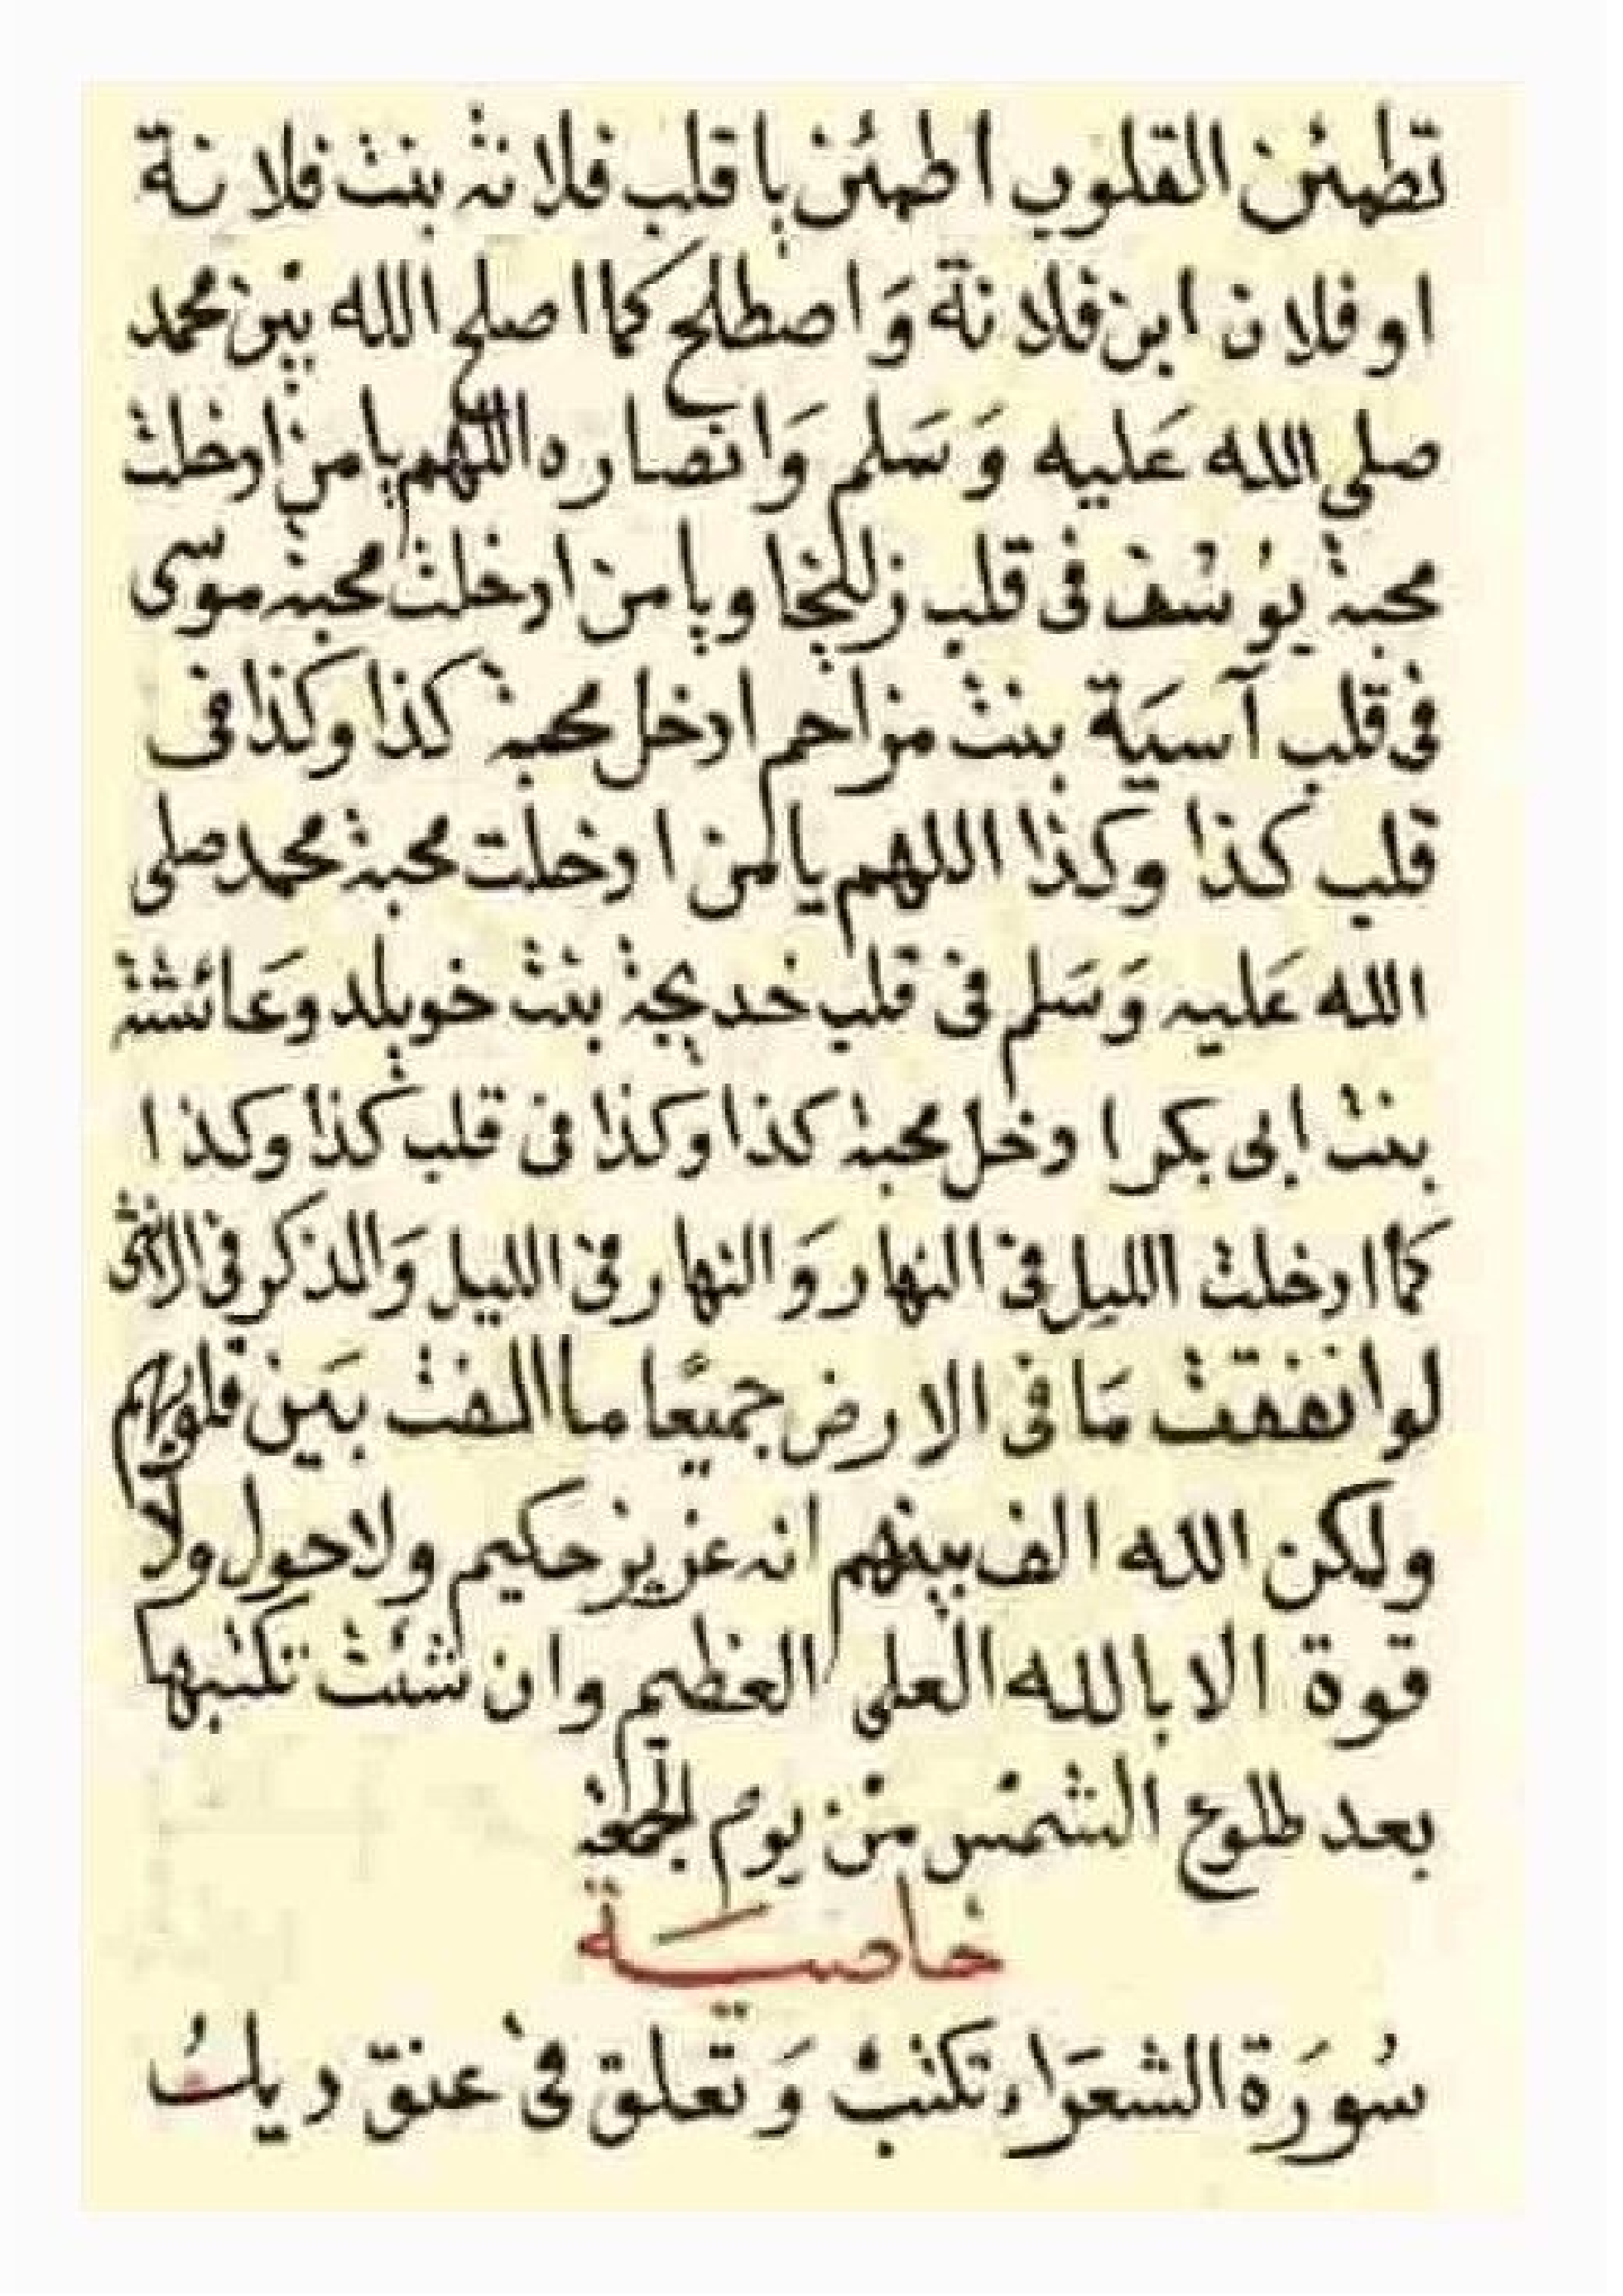 تطمئن القلوب اطمئن يا قلب فلانة بنت فلانة
او فلان ابن فلانة وَاصطلح كما اصلح الله بين محمد
صلى الله عَليه وَسَلم وَانصاره اللهم يا من ادخلت
محبة يوسُف فى قلب زليخا ويا من ادخلت محبة موسى
فى قلب آسيَة بنت مزاحم ادخل محبة كذا وكذا فى
قلب كذا وكذا اللهم يا من ادخلت محبة محمد صلى
الله عَليه وَسَلم فى قلب خديجة بنت خويلد وعَائشة
بنت ابى بكر ادخل محبة كذا وكذا فى قلب كذا وكذا
كما ادخلت الليل فى النهار وَالنهار فى الليل وَالذكر فى الانثى
لو انفقت مَا فى الارض جميعًا ما الفت بَين قلوبهم
ولكن الله الف بينهم انه عزيز حكيم ولا حول ولا
قوة الا بالله العلى العظيم وان شئت تكتبها
بعد طلوع الشمس من يوم الجمعة
خاصيَة
سُورَة الشعَراء تكتب وَتعلق فى عنق ديك